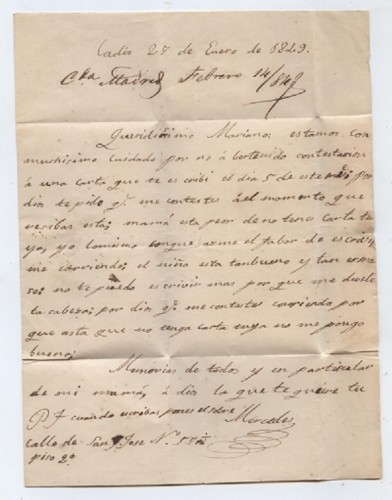 Cadiz 28 de Enero de 1849.
Cda Madrid Febrero 14/849
Queridisimo Mariano; estamos con
muchisimo Cuidado por no á bertenido contestacion
á una Carta que te es cribi el dia 5 de este mes por
dios te pido q.e me contestes del momento que
recibas esta; mamá esta peor de no tener Carta tu
ya, yo lo mismo
me corriendo; el niño esta tan bueno y tan ermo
so; no te puedo escrivir mas por que me duele
la cabeza; por dios q.e me contestes corriendo por
que asta que no tenga carta tuya no me pongo
buena;
Memorias de todos y en particular
de mi mamá, á dios la que te quiere tu
Mercedes
P J cuando escribas pones el sobre
calle de San Jose N.o 5
piso 2o